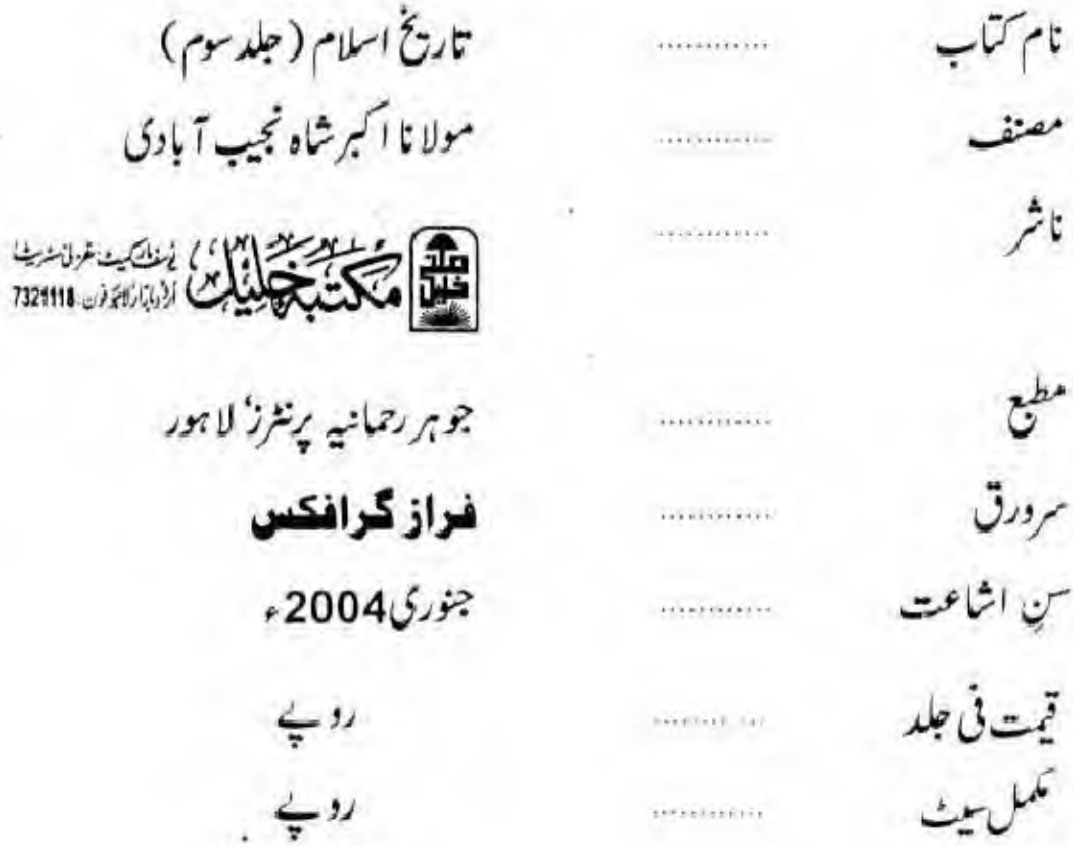 نام کتاب ............ تاریخ اسلام (جلد سوم)
مصنف ............ مولانا اکبر شاہ نجیب آبادی
ناشر ............ مکتبہ خلیل یوسف مارکیٹ غزنی سٹریٹ
اردو بازار لاہور فون: 7321118
مطبع ............ جوہر رحمانیہ پرنٹرز' لاہور
سرورق ............ فراز گرافکس
سنِ اشاعت ............ جنوری 2004ء
قیمت فی جلد ............ روپے
مکمل سیٹ ............ روپے